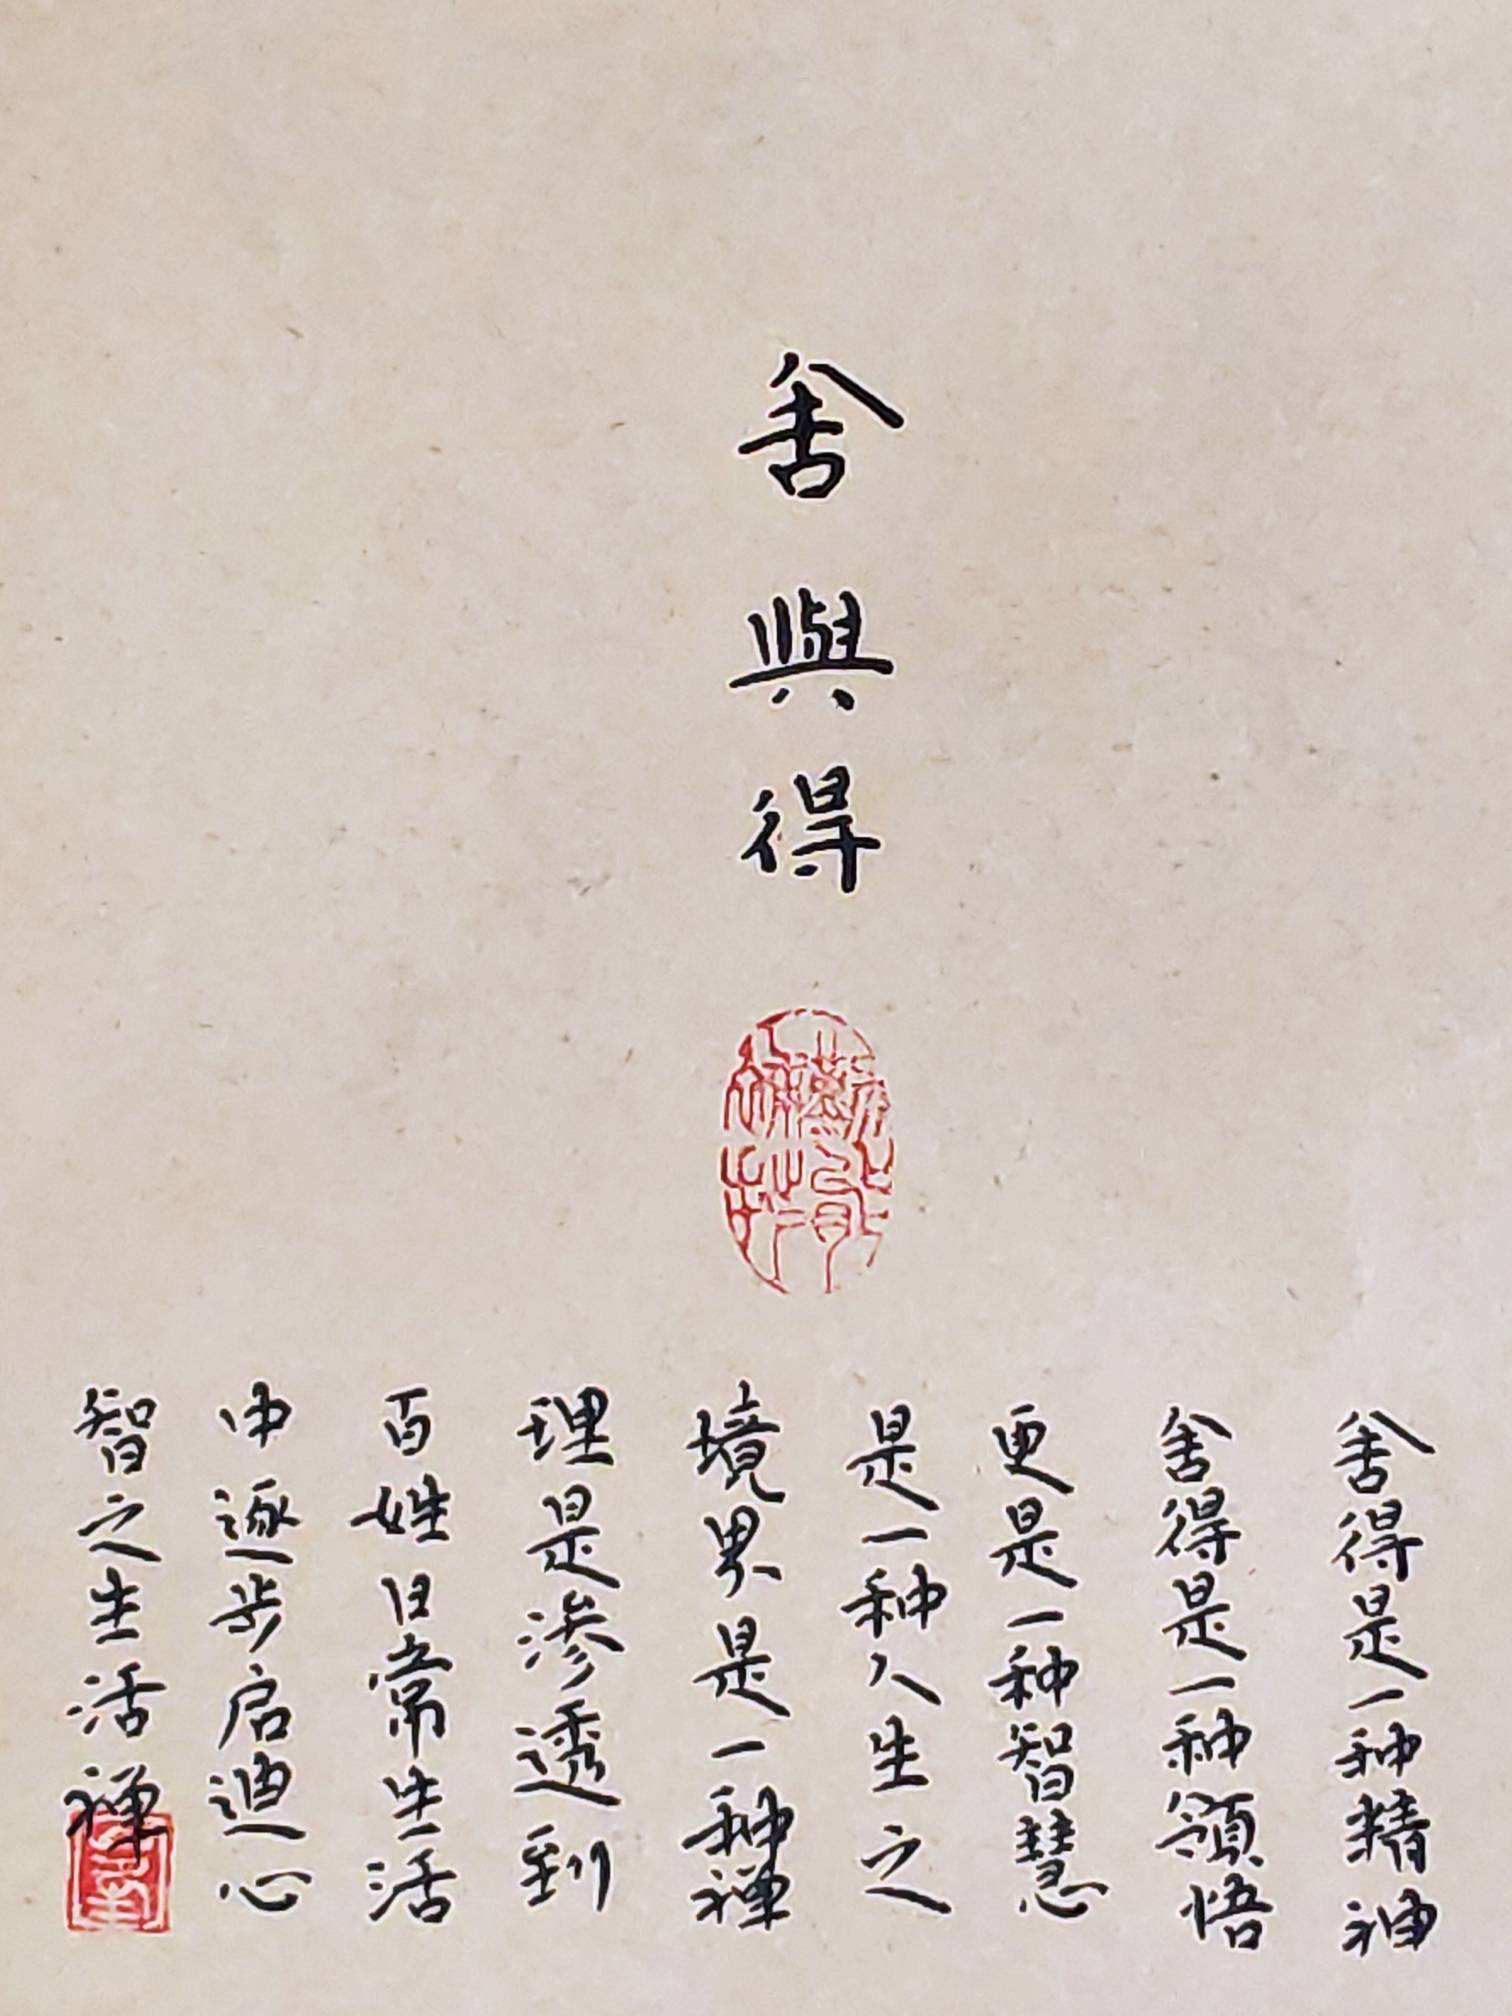 舍與得
舍得是一种精神
舍得是一种領悟
更是一种智慧
是一种人生之
境界是一种禅
理是渗透到
百姓日常生活
中逐步启迪心
智之生活禅